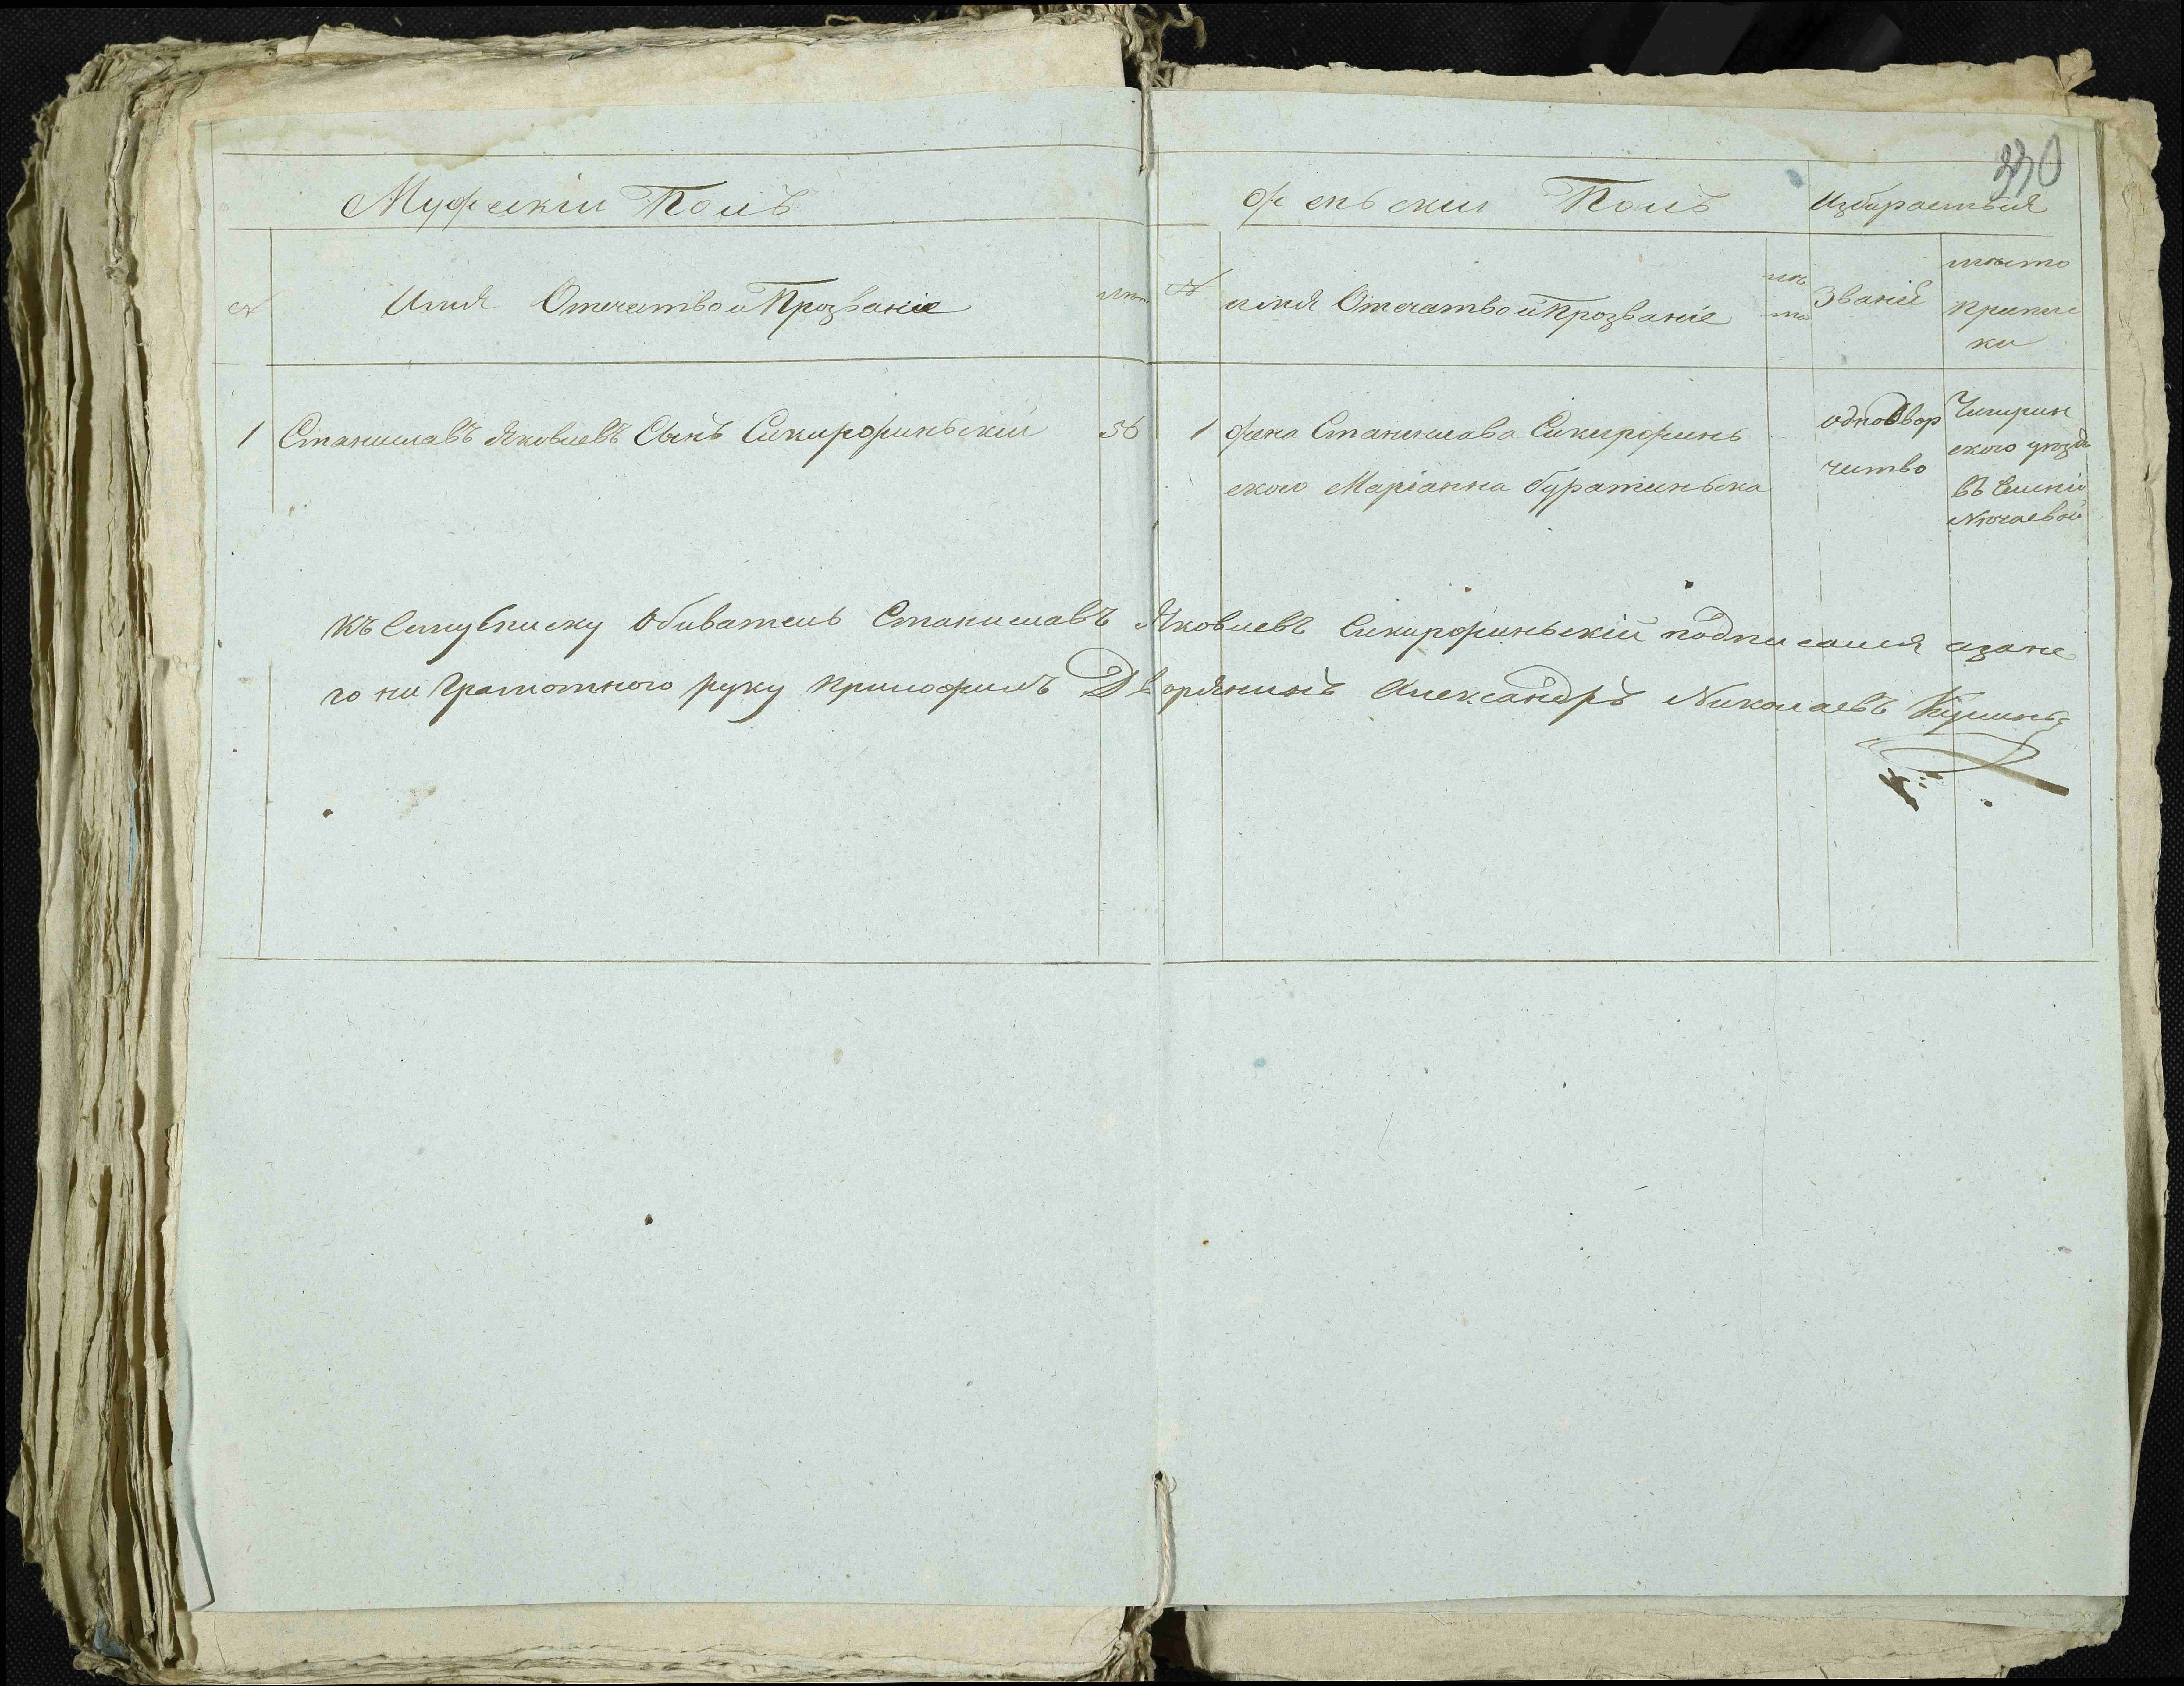 330
Мужскій Полъ
Женьскій Полъ
Избирается
№ Имя Отечество и Прозваніе лѣта
№ имя Отечатво и Прозваніе лѣ
та
Званіе
мѣсто
припис
ки
1 Станиславъ Яковлевъ Сынъ Сикирожиньскій 56
1 жена Станислава Сикирожинь
ского Маріанна Буратиньска
однодвор
чиство
Чигирин
ского уѣзда
въ селѣніи
Къ Симу Списку Обыватель Станиславъ Яковлевъ Сикирожиньскій подписался а за не
го не Грамотного руку приложилъ Дворянинъ Александръ Николаевъ